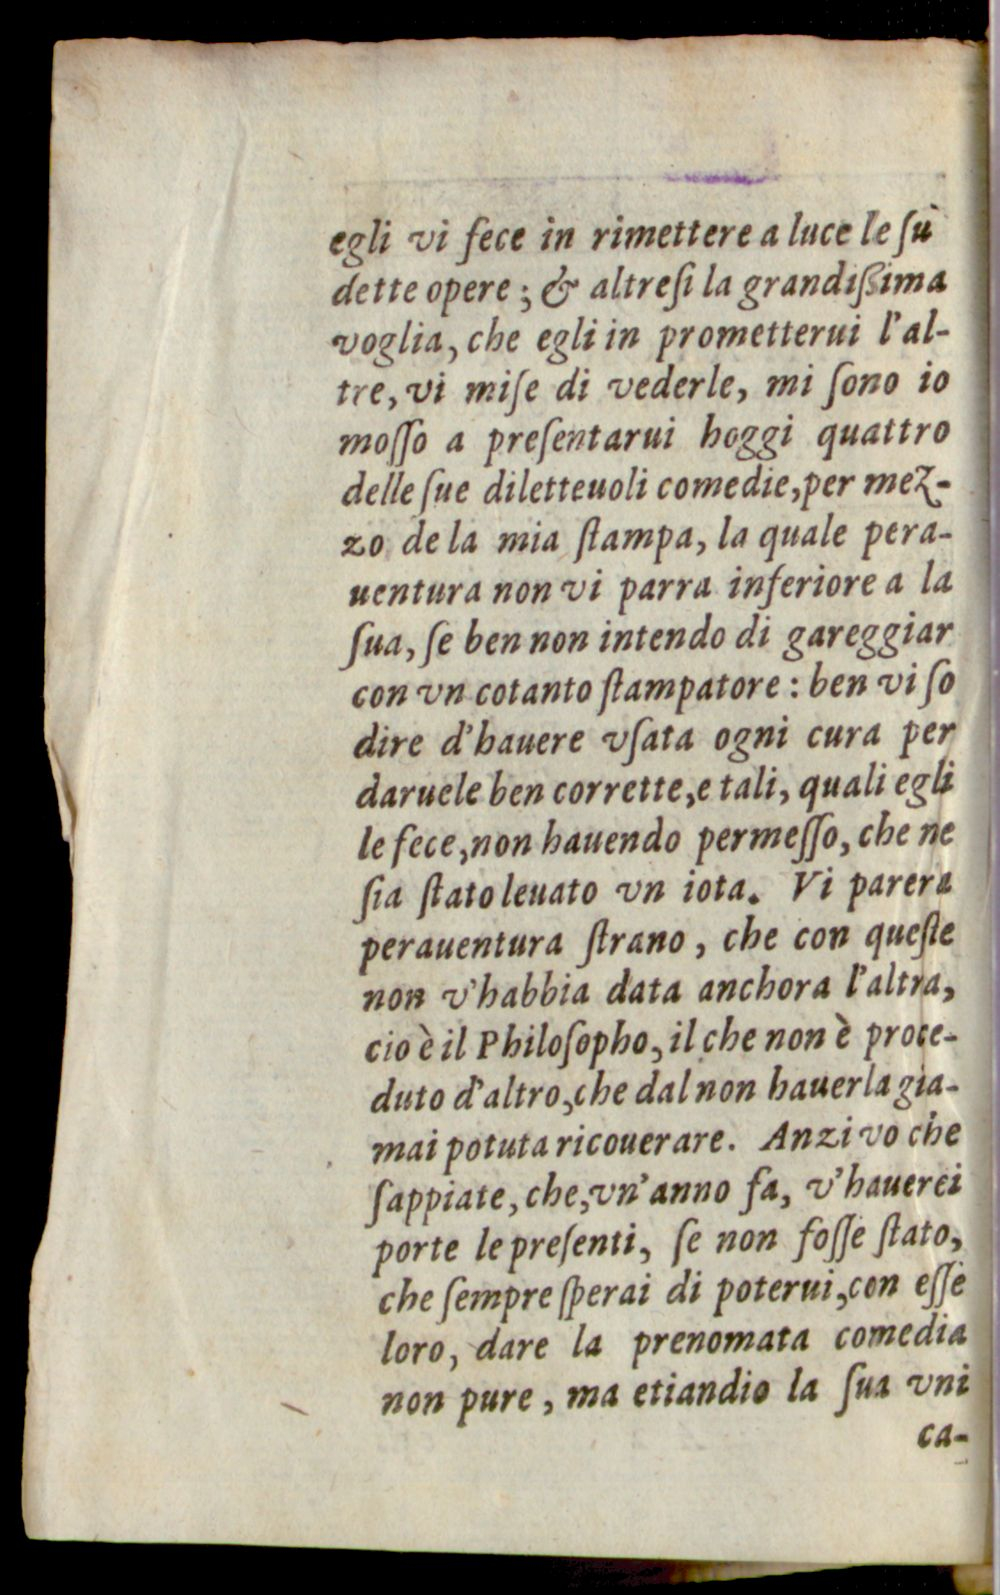 egli vi fece in rimettere a luce le ſù
dette opere; & altreſi la grandiſſima
voglia, che egli in prometterui l'al-
tre, vi miſe di vederle, mi ſono io
moſſo a preſentarui hoggi quattro
delle ſue diletteuoli comedie, per mez-
zo de la mia ſtampa, la quale pera-
uentura non vi parra inferiore a la
ſua, ſe ben non intendo di gareggiar
con vn cotanto ſtampatore: ben vi ſo
dire d'hauere vſata ogni cura per
daruele ben corrette, e tali, quali egli
le fece, non hauendo permeſſo, che ne
ſia ſtato leuato vn iota. Vi parera
perauentura ſtrano, che con queſte
non v'habbia data anchora l'altra,
cio è il Philoſopho, il che non è proce-
duto d'altro, che dal non hauerla gia-
mai potuta ricouerare. Anzi vo che
ſappiate, che, vn'anno fa, v'hauerei
porte le preſenti, ſe non foſſe ſtato,
che ſempre ſperai di poterui, con eſſe
loro, dare la prenomata comedia
non pure, ma etiandio la ſua vni
ca-